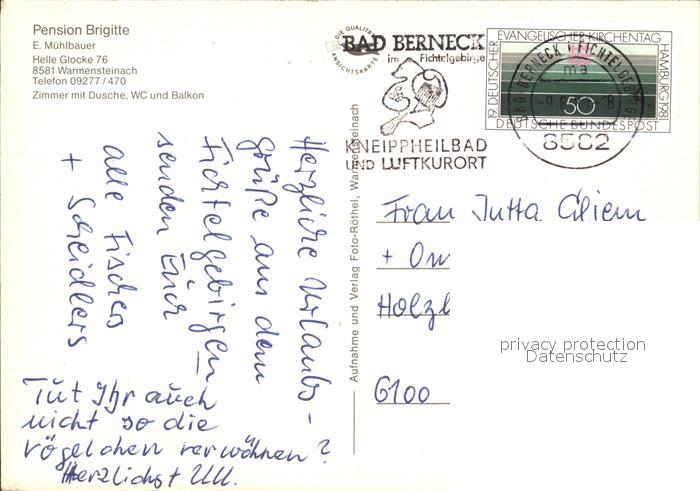 Pension Brigitte
E. Mühlbauer
Helle Glocke 76
8581 Warmensteinach
Telefon 09277/470
Zimmer mit Dusche, WC und Balkon
DIE QUALITÄTS
ANSICHTSKARTE
BAD BERNECK
im Fichtelgebirge
KNEIPPHEILBAD
UND LUFTKURORT
19. DEUTSCHER EVANGELISCHER KIRCHENTAG HAMBURG 1981
50
DEUTSCHE BUNDESPOST
BAD BERNECK i FICHTELGEBIRGE
ma
8582
Aufnahme und Verlag Foto-Röthel, Warmensteinach
Herzliche Urlaubs-
grüße aus dem
Fichtelgebirgen
senden Euch
alle Fischers
+ Scheidlers
Tut Ihr auch
nicht so die
vögelchen verwöhnen?
Herzlichst
Frau Jutta
+
Holzl
6100
privacy protection
Datenschutz